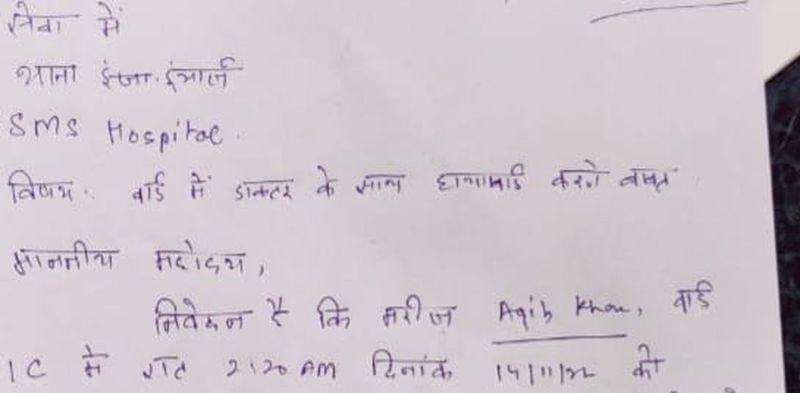 सेवा में
थाना इंचार्ज
SMS Hospital.
विषय:. वार्ड में डाक्टर के साथ हाथापाई करने बाबत
माननीय महोदय,
निवेदन है कि मरीज Aqib Khan, वार्ड
1C में रात 2:20 AM दिनांक 14/11/22 को